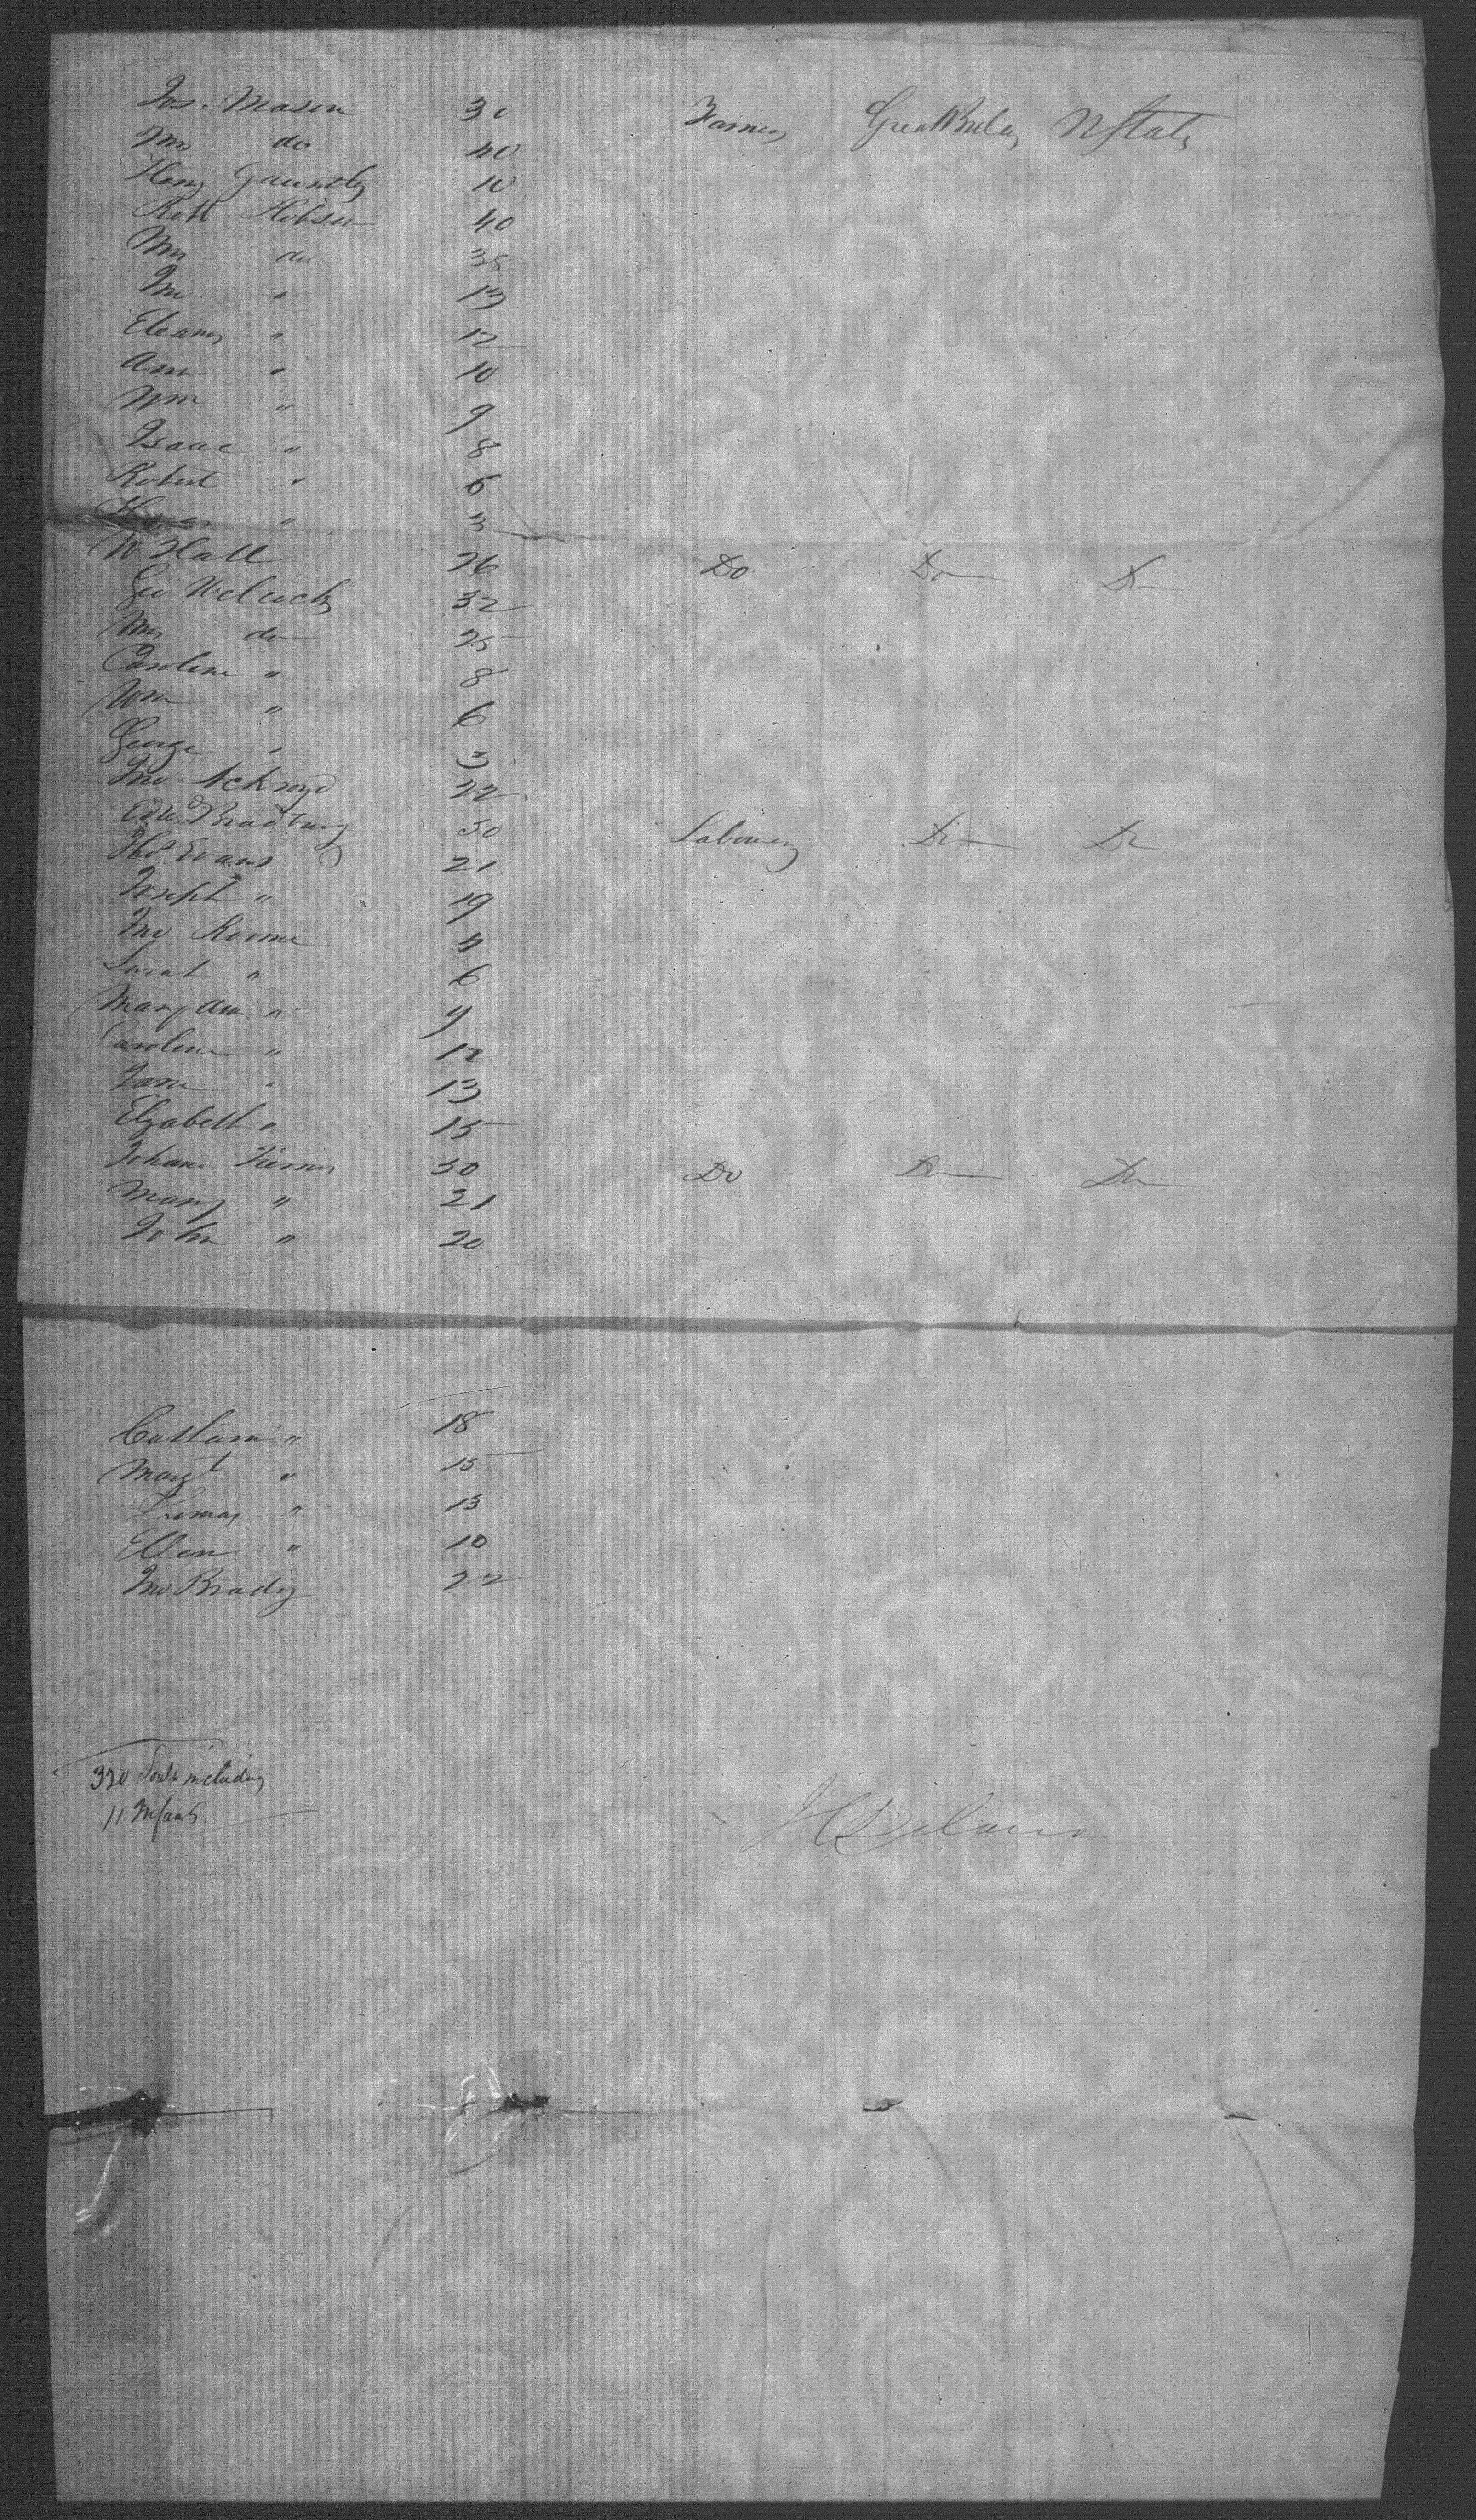 Jos. Mason 30 Farmer Great Britain U States
Mrs do 40
Heny Gauntley 10
Robt Hobson 40
Mrs do 38
Jno " 13
Eleanor " 12
Ann " 10
Wm " 9
Isaac " 8
Robert " 6
" 3
W Hall 26 Do Do Do
Geo Welcock 32
Mrs do 25
Caroline " 8
Wm " 6
George " 3
Jno Ackroyd 22
Edwd Bradbury 50 Labourer Do Do
Thos Evans 21
Joseph " 19
Jno Roome 4
Sarah " 6
Mary Ann " 9
Caroline " 12
Jane " 13
Elizabeth " 15
Johana 50 Do Do Do
Mary " 21
John " 20
" 18
Margt " 15
Thomas " 13
Ellen " 10
Jno Brady 22
320 Souls including
11 Infants